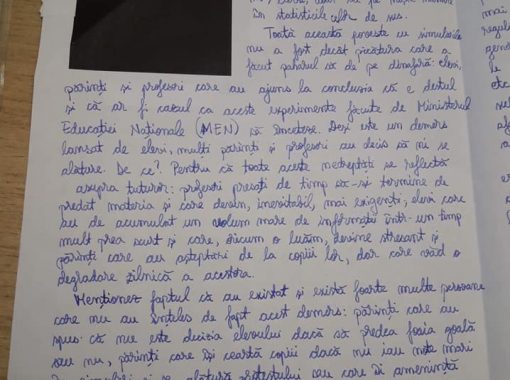 în statisticile celor de sus.
Toată această poveste cu simulările
nu a fost decât picătura care a
făcut paharul să dea pe dinafară: elevi,
părinți și profesori care au ajuns la concluzia că e destul
și că ar fi cazul ca aceste experimente făcute de Ministerul
Educației Naționale (MEN) să înceteze. Deși este un demers
lansat de elevi, mulți părinți și profesori au decis să ni se
alăture. De ce? Pentru că toate aceste nedreptăți se reflectă
asupra tuturor: profesori presați de timp să-și termine de
predat materia și care devin, inevitabil, mai exigenți, elevi care
au de acumulat un volum mare de informații într-un timp
mult prea scurt și care, oricum o luăm, devine stresant și
părinți care au așteptări de la copiii lor, dar care văd o
degradare zilnică a acestora.
Menționez faptul că au existat și există foarte multe persoane
care nu au înțeles de fapt acest demers: părinți care au
spus că nu este decizia elevului dacă să predea foaia goală
sau nu, părinți care își ceartă copiii dacă nu iau note mari
se alătură protestului sau care îi amenință
mai
regul
gene
le
etc